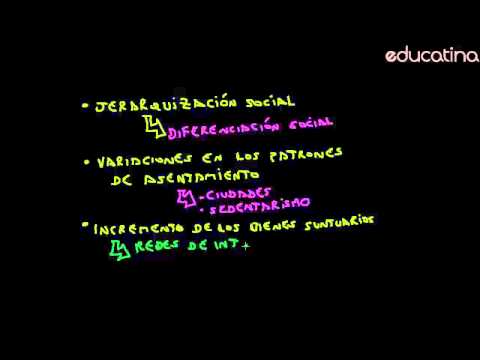 educatina
• JERARQUIZACIÓN SOCIAL
DIFERENCIACIÓN SOCIAL
• VARIACIONES EN LOS PATRONES
DE ASENTAMIENTO
• CIUDADES
• SEDENTARISMO
• INCREMENTO DE LOS BIENES SUNTUARIOS
REDES DE INT